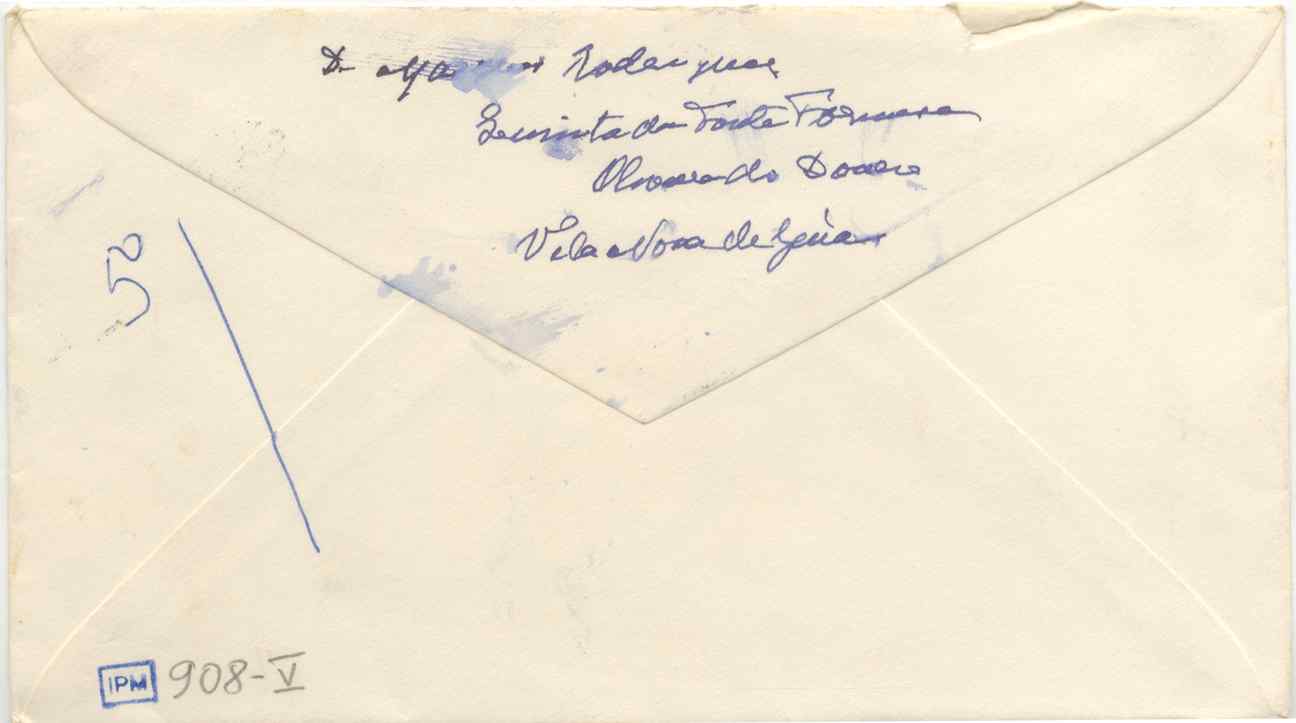 Dr Rodrigues
Quinta da Fonte Formosa
Oliveira do Douro
Vila Nova de Gaia
50
IPM 908-V